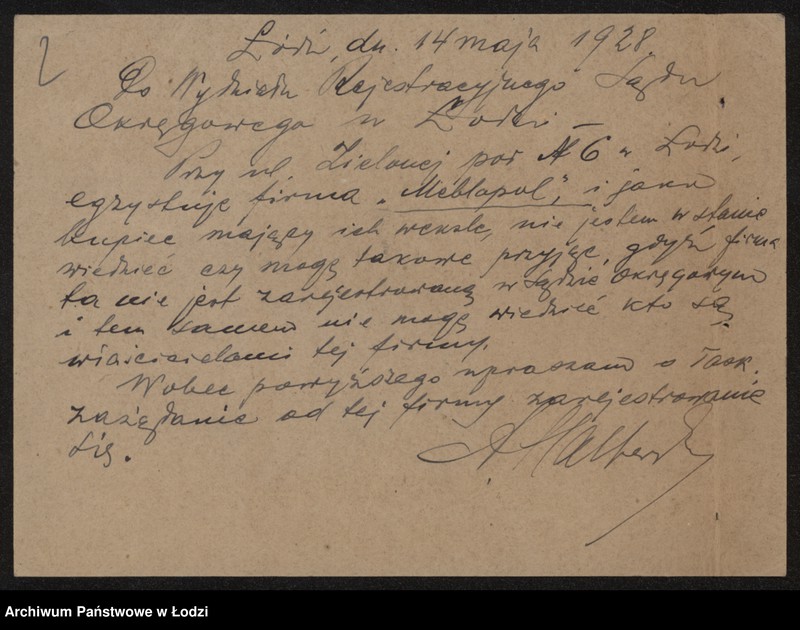 2
Łódź, dn. 14 maja 1928.
Do Wydziału Rejestracyjnego Sądu
Okręgowego w Łodzi —
Przy ul. Zielonej pod № 6 w Łodzi,
egzystuje firma „Meblopol", i jako
kupiec mający ich weksle, nie jestem w stanie
wiedzieć czy mogę takowe przyjąć, gdyż firma
ta nie jest zarejestrowaną w Sądzie Okręgowym
i tem samem nie mogę wiedzieć kto są
właścicielami tej firmy.
Wobec powyższego upraszam o łask.
zażądanie od tej firmy zarejestrowanie
się.
Archiwum Państwowe w Łodzi